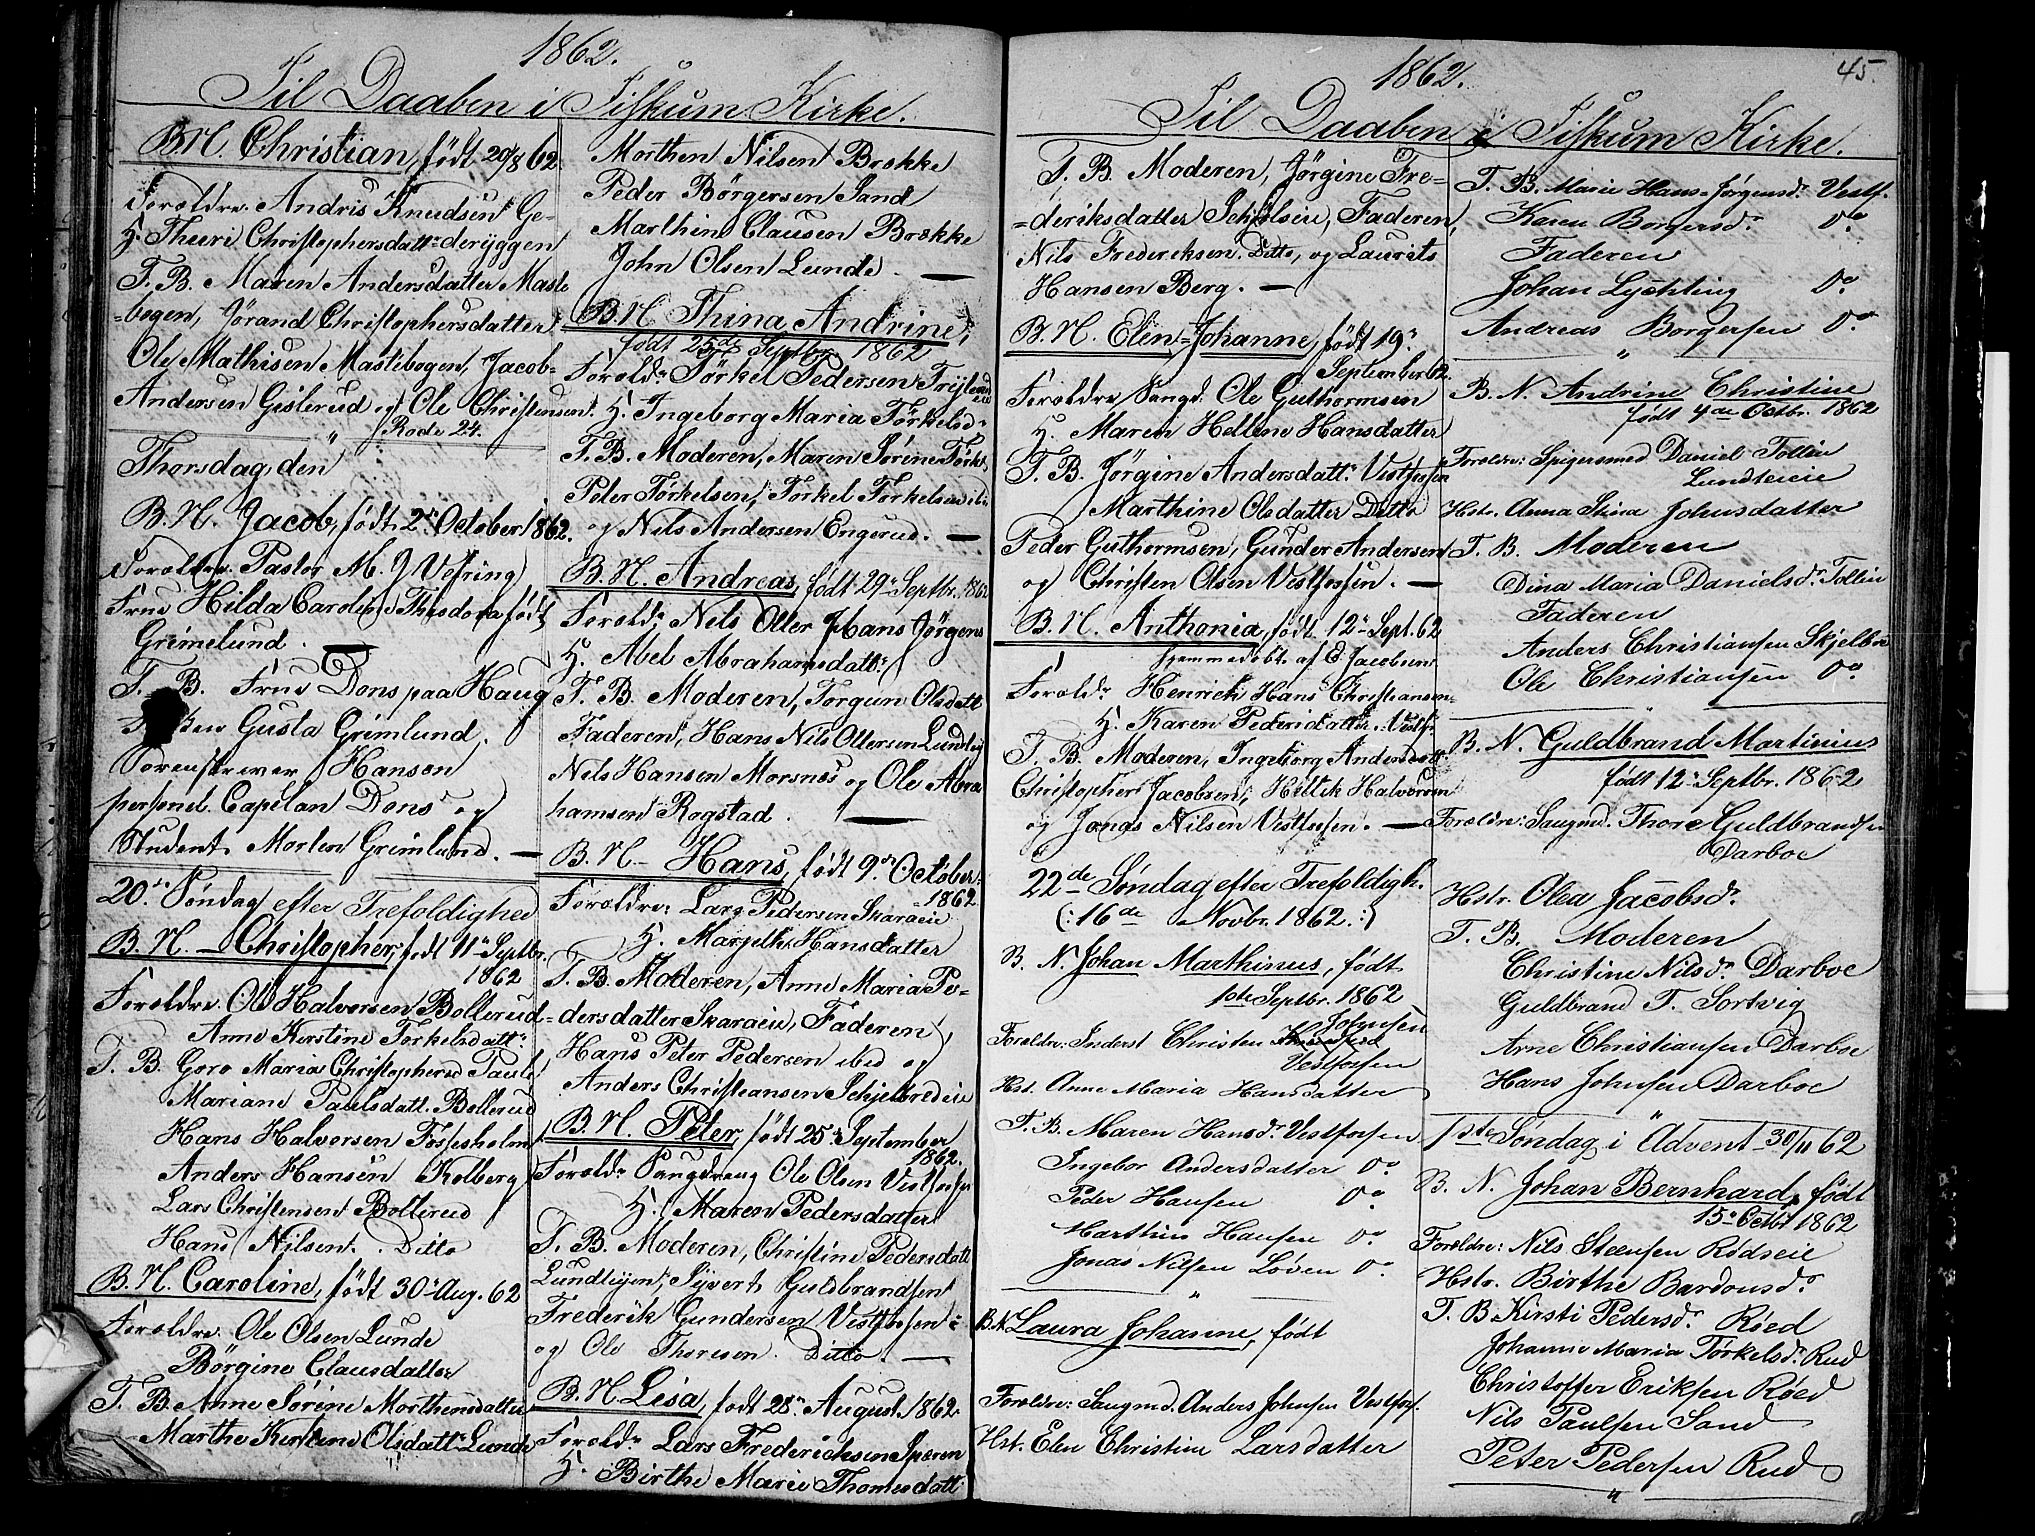 1862.
Til Daaben i Fiskum Kirke.
B.N. Christian, født 20/8 62.
Forældre. Andris Knudsen Ge-
H. Thuri Christophersdattr deryggen
F. B. Maren Andersdatter Maste
=bogen, Jørand Christophersdatter
Ole Mathisen Mastebogen, Jacob
Andersen Gislerud og Ole Christensen
Rode 24.
Thorsdag, den
B.N. Jacob, født 2n October 1862.
Forældre Pastor M. J Vefring
Frue Hilda Caroline Thisdora født
Grimelund.
F. B. Frue Dons paa Haug
Gusta Grimlund,
Sorenskrever Hansen
personel. Capelan Dons og
Student Morten Grimlund.
20de Søndag efter Trefoldighed
B.N. Christopher, født 11n Septbr.
1862
Forældre. Ole Halversen Bollerud
Anne Kirstine Torkelsdattr
F. B. Goro Maria Christophersd Pauls
Mariane Paulsdatt. Bollerud
Hans Halversen Fossesholm
Anders Hansen Kolberg
Lars Christensen Bollerud
Hans Nilsen. Ditto
B.N. Caroline, født 30n Aug. 62
Forældre. Ole Olsen Lunde
Børgine Clausdatter
F. B. Anne Sørine Morthensdatter
Marthe Kirstine Olsdattr Lunde
Morthen Nilsen Brække
Peder Børgersen Sand
Marthin Clausen Brække
John Olsen Lunde.
B.N. Thina Andrine,
født 25de Septbr. 1862
Foreldr. Törkel Pedersen
H. Ingeborg Maria Törkelsdr
F. B. Moderen, Maren Sørine Törks.
Peter Törkelsen, Torkel Torkelsen
og Nils Andersen Engerud.
B.N. Andreas, født 29n Septbr. 1862
Foreldr. Nels Oller Hans Jörgens
H. Abel Abrahamsdattr
F. B. Moderen, Torgun Olsdatt
Faderen, Hans Nils Ollersen
Nils Hansen Morsnes og Ole Abra
hamsen Rogstad.
B.N. Hans, født 9de October
1862
Forældre: Lars Pedersen Skaraeie
H. Margethe Hansdatter
F. B. Moderen, Anne Maria Pe-
=dersdatter Skaraeie, Faderen,
Hans Peter Pedersen ibid og
Anders Christiansen
B.N. Peter, født 25n September
1862.
Foreldr Saugdreng Ole Olsen Vestfossen
H. Maren Pedersdatter
F. B. Moderen, Christine Pedersdatt
Sÿvert Guldbrandsen
Frederik Gundersen Vestfossen
og Ole Thoresen. Ditto.
B.N. Lisa, født 28n August 1862.
Foreldr Lars Fredericksen
H. Birthe Marie Thomesdatt
45.
1862.
Til Daaben i Fiskum Kirke.
F. B. Moderen, Jørgine Fre=
=deriksdatter Faderen,
Nils Frederiksen. Ditto, og Laurits
Hansen Berg.
B.N. Elen-Johanne, født 19n
September 62.
Forældre Saugd. Ole Guthormsen
H. Maren Hellene Hansdatter
F. B. Jörgine Andersdattr Vestfossen
Marthine Olsdatter Ditto
Peder Guthormsen, Gunder Andersen
og Christen Olsen Vestfossen.
B.N. Anthonia, født 12n Sept. 62
hjemmedøbt. af E. Jacobsen
Foreldr Henrick Hans Christiansen
H. Karen Pedersdatter Vestfs
F. B. Moderen, Ingeborg Andersdatt
Christopher Jacobsen, Hellik Halvorsen
og Jonas Nilsen Vestfossen.
22de Søndag efter Trefoldigh.
(: 16de Novbr. 1862. :)
B. N. Johan Marthinus, født
1ste Septbr. 1862
Johnsen
Forældre: Inderst Christen
Vestfossen
Hst. Anne Maria Hansdatter
F. B. Maren Hansdr Vestfossen
Ingebor Andersdatter Do
Peder Hansen Do
Marthin Hansen Do
Jonas Nilsen Løven Do
B.N. Laura Johanne, født
Forældre: Saugmd. Anders Johnsen Vestfos.
Hst. Elen Christine Larsdatter
F. B. Marie Hans-Jørgensdr Vestf.
Karen Borgersdr Do
Faderen
Johan Lychting Do
Andreas Borgersen Do
B. N. Andrine Christine
født 4de Octbr. 1862
Forældre: Spigersmed Daniel Tollin
Lundteeie
Hstr. Anna Stina Johnsdatter
F. B. Moderen
Dina Maria Danielsdr Tollin
Faderen
Anders Christiansen Skjelbre
Ole Christiansen Do
B. N. Guldbrand Martinius
født 12n Septbr. 1862
Forældre: Saugmd. Thore Guldbrandsen
Darboe
Hstr. Olea Jacobsdr
F. B. Moderen
Christine Nilsdr Darboe
Guldbrand T. Sortvig
Arne Christiansen Darboe
Hans Johnsen Darboe
1ste Søndag i Advent 30/11 62
B. N. Johan Bernhard, født
15n Octbr 1862
Forældre: Nils Steensen Rødseie
Hstr. Birthe Bardonsdr
F. B Kirsti Pedersdr Røed
Johanne Maria Törkelsdr Rud
Christoffer Eriksen Røed
Nils Paulsen Sand
Peter Pedersen Rud